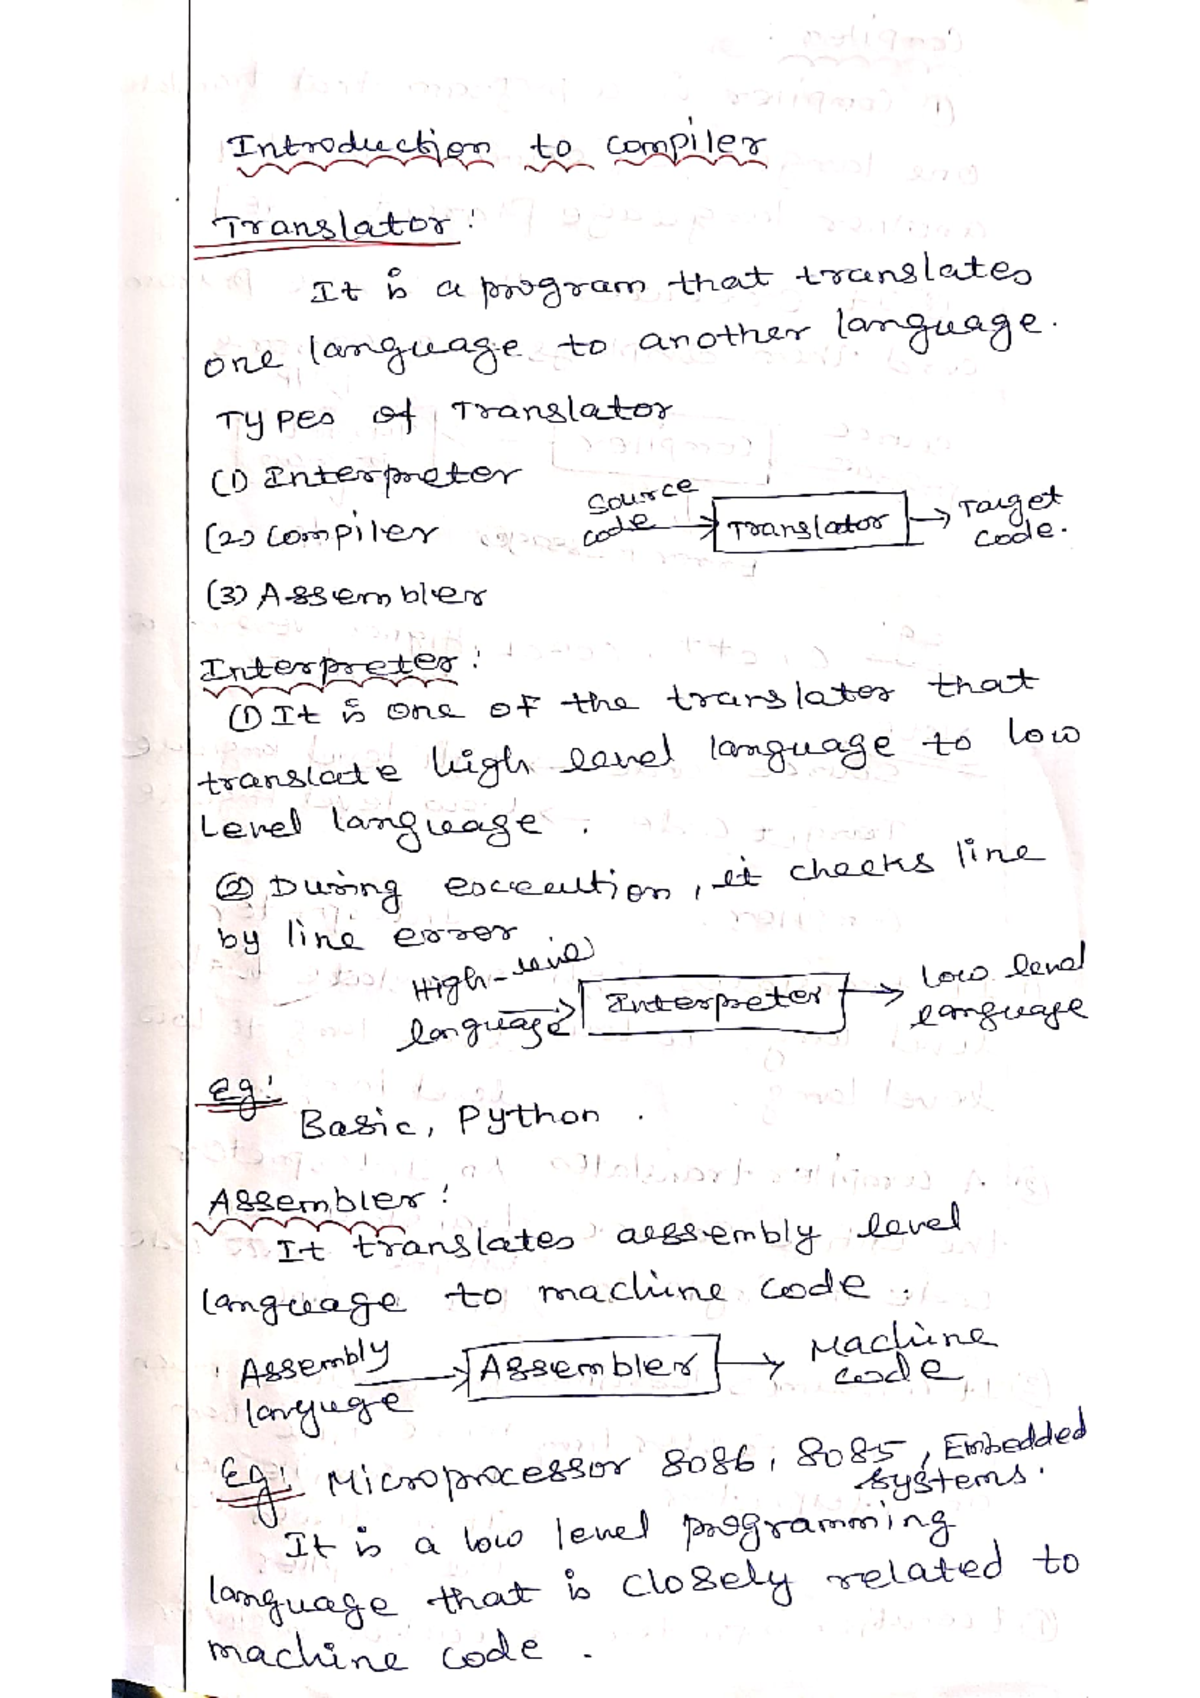 Introduction to compiler
Translator:
It is a program that translates
one language to another language.
Types of Translator
(1) Interpreter
(2) Compiler
Source
code
Translator
Target
Code.
(3) Assembler
Interpreter:
(1) It is one of the translator that
translate high level language to low
Level language.
(2) During execution, it checks line
by line error
High-level
language
Interpreter
low level
language
Eg:
Basic, Python.
Assembler:
It translates assembly level
language to machine code.
Assembly
language
Assembler
Machine
code
Eg: Microprocessor 8086, 8085, Embedded
systems.
It is a low level programming
language that is closely related to
machine code.